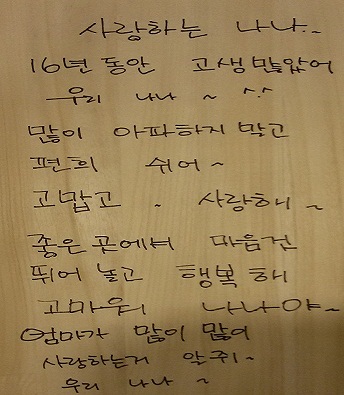 사랑하는 나나..
16년 동안 고생 많았어
우리 나나 ~ ^.^
많이 아파하지 말고
편희 쉬어~
고맙고 . 사랑해 ~
좋은 곳에서 마음껀
뛰어 놀고 행복해
고마워 나나야~
엄마가 많이 많이
사랑하는거 알쥐~
우리 나나 ~